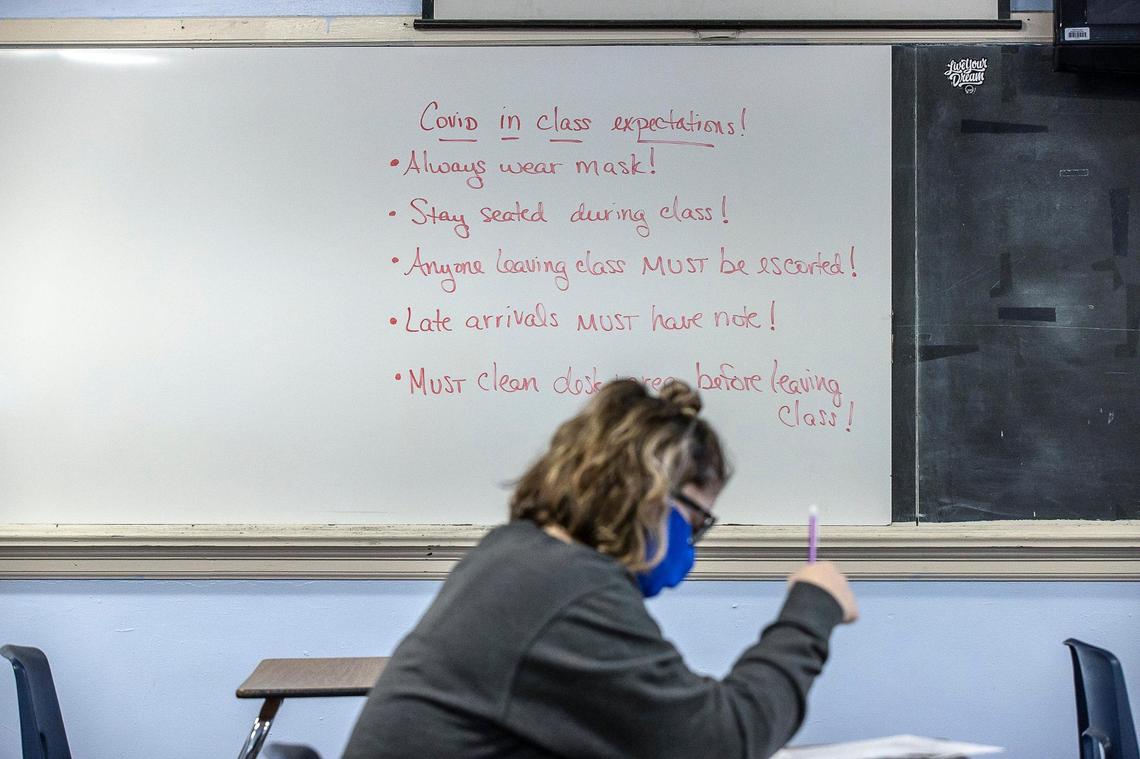 Live Your
Dream
Covid in class expectations!
• Always wear mask!
• Stay seated during class!
• Anyone leaving class MUST be escorted!
• Late arrivals MUST have note!
• MUST clean desk area before leaving
class!